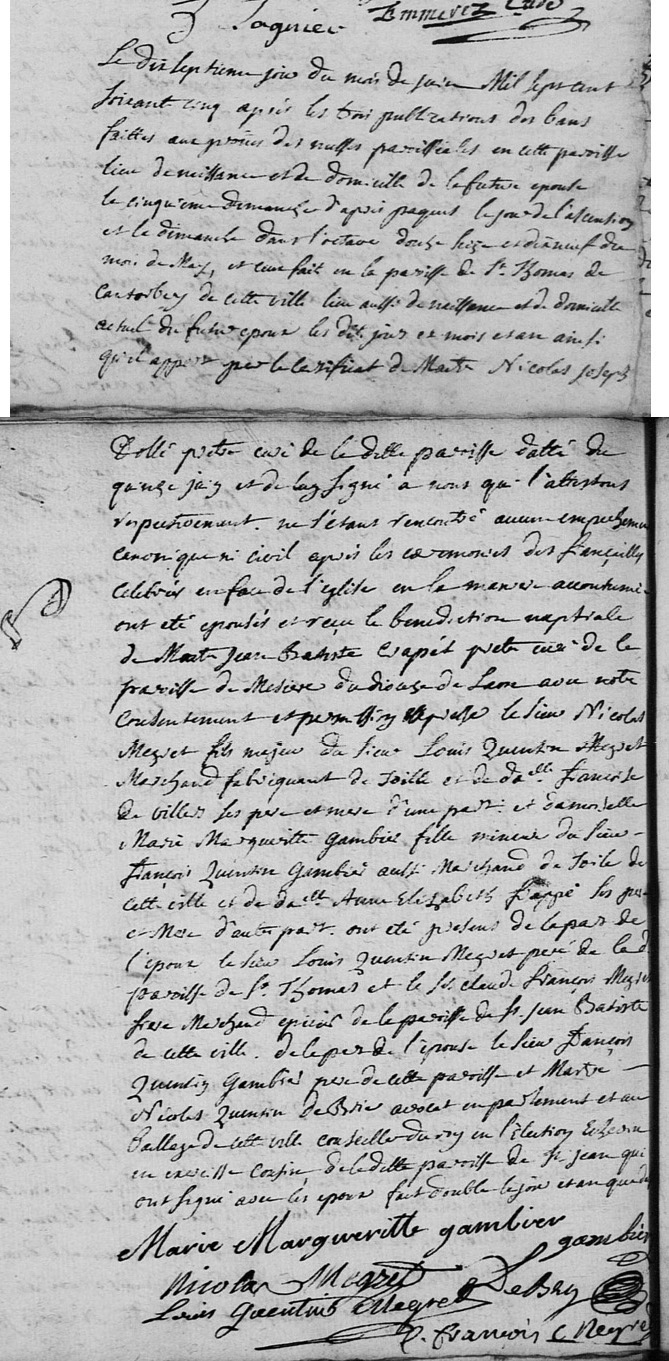 Lagnier Emmerez Curé
Le dix septieme jour du mois de juin Mil sept cent
soixant cinq après les trois publications des bans
faittes aux prônes des messes paroissiales en cette paroisse
lieu de naissance et de domicille de la future epouse
le cinquieme dimanche d'après paques le jour de l'ascention
et le dimanche dans l'octave douze seize et dixneuf du
mois de May, et ceux fait en la paroisse de St. Thomas de
Cantorbery de cette ville lieu aussi de naissance et de domicille
actuel du futur epoux les dits jours et mois et an ainsi
qu'il appert par le certificat de Maitre Nicolas Joseph
pretre curé de la ditte paroisse datté du
quinze juin et de luy signé a nous qui l'attestons
respectivement. ne s'etant rencontré aucun empechement
canonique ni civil après les ceremonies des fiançailles
celebrés en face de l'eglise en la maniere accoutumée
ont eté epousés et reçu le benediction nuptiale
de Maitre Jean Batiste pretre curé de la
paroisse de du diocese de Laon avec notre
consentement et permission le sieur Nicolas
Megret fils majeur du sieur Louis Quentin Megret
Marchand fabriquant de Toille et de dalle. Françoise
de Villers ses pere et mere d'une part. et damoiselle
Marie Margueritte Gambier fille mineur du sieur
François Quentin Gambier aussi Marchand de Toile de
cette ville et de dalle. Anne Elizabeth ses pere
et Mere d'autre part. ont eté presens de la part de
l'epoux le sieur Louis Quentin Megret pere de la d.
paroisse de St. Thomas et le Sr. claude François Megret
frere Marchand epicier de la paroisse de St. Jean Batiste
de cette ville. de la part de l'epouse le sieur François
Quentin Gambier pere de cette paroisse et Maitre
Nicolas Quentin De Brie avocat en parlement et au
Baillage de cette ville conseiller du roy en l'Election Echevin
en exercisse cousin de la ditte paroisse de St. Jean qui
ont signé avec les epoux fait double le jour et an que d.
Marie Margueritte gambier gambier
Nicolas Megret De Bry
Louis Quentin Megret
C. François Megret